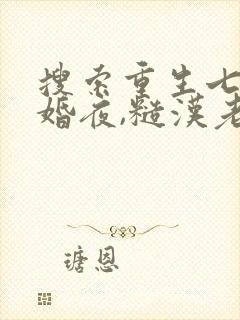 搜索重生七
婚夜,糙漢老
瑭恩